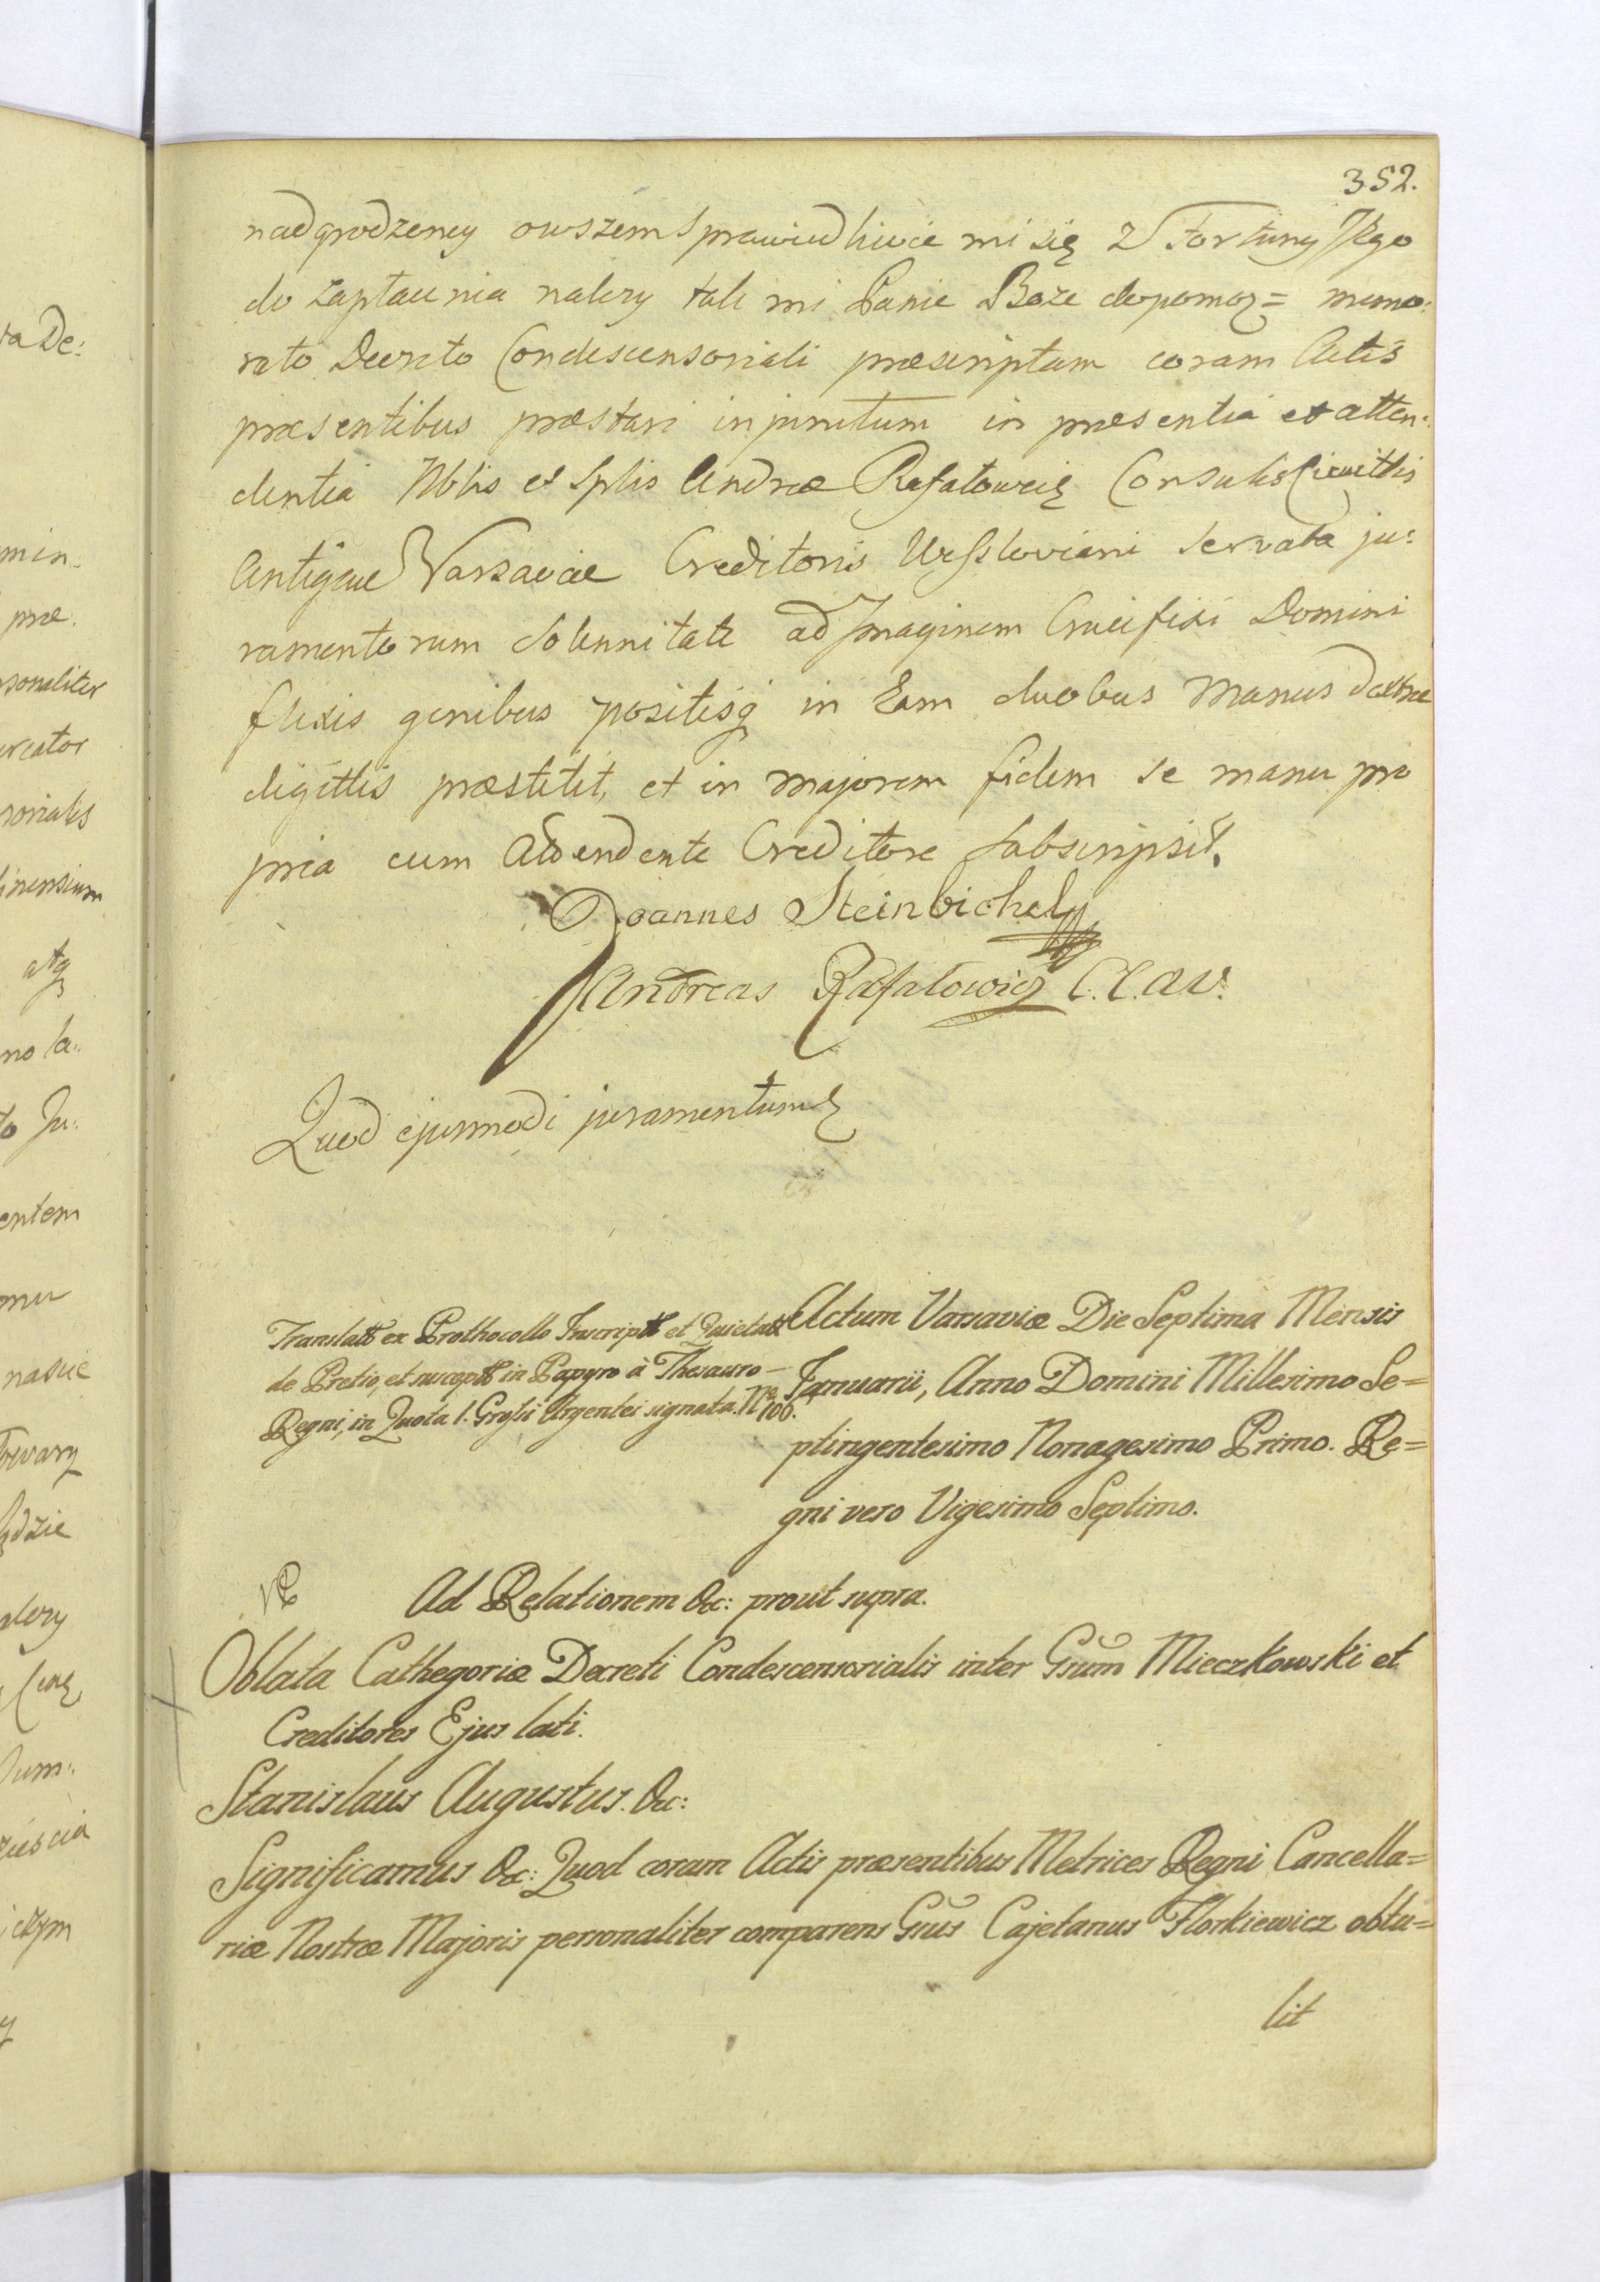 352.
nadgrodzeney owszem Sprawiedliwie mi się z Fortuny Jego
do zapłacenia należy tak mi Panie Boże dopomoz = memo:
rato Decreto Condescensoriali præscriptum coram Actis
præsentibus præstari injunctum in præsentia et atten:
dentia Nblis et Splis Andreæ Rafałowicz Consulis Civittis
Antiquæ Varsaviæ Creditoris servata ju:
ramentorum solennitate ad Imaginem Crucifixi Domini
flexis genibus positisq in Eam duobus manus dextræ
digittis præstitit, et in majorem fidem se manu pro
pria cum Attendente Creditore subscripsit.
Joannes Steinbichel
Andreas Rafałowicz C.C.A.V.
Quod ejusmodi juramentum
Translatt ex Prothocollo Inscriptt et Quietatt
de Pretio, et suscептt in Papyro à Thesauro
Regni, in Quota 1. Grossi Argentei signata. Nro 106.
Actum Varsaviæ Die Septima Mensis
Januarii, Anno Domini Millesimo Se=
ptingentesimo Nonagesimo Primo. Re=
gni vero Vigesimo Septimo.
Ad Relationem &c: prout supra.
Oblata Cathegoriæ Decreti Condescensorialis inter Gsum Mieczkowski et
Creditores Ejus lati.
Stanislaus Augustus. &c:
Significamus &c: Quod coram Actis præsentibus Metrices Regni Cancella=
riæ Nostræ Majoris personaliter comparens Gsus Cajetanus Florkiewicz obtu=
lit